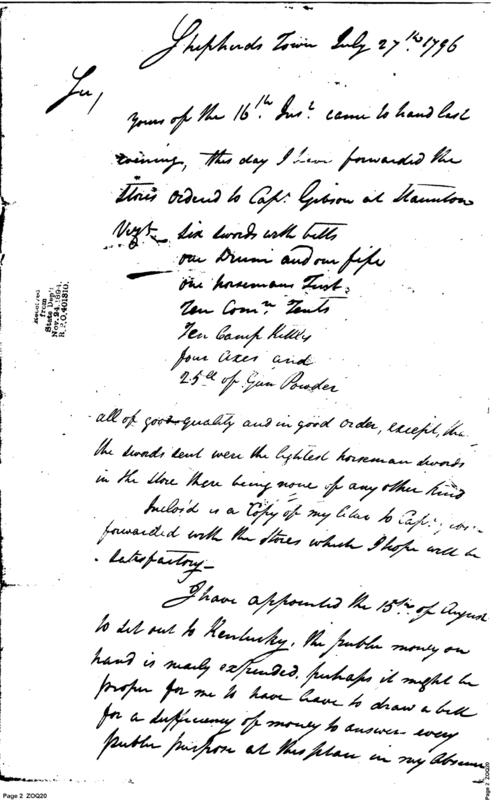 Shepherds Town July 27th. 1796
Sir,
yours of the 16th. Inst. came to hand last
evening, this day I have forwarded the
stores ordered to Capt. Gibson at Staunton
Vizt. six swords with belts
one Drum and one fife
one horsemans Tent
Ten Comn. Tents
Ten Camp Kettles
four axes and
25 lb of Gun Powder
all of good quality and in good order, except, the
the swords sent were the lightest horseman swords
in the store there being none of any other kind
Inclos'd is a Copy of my letter to Capt.
forwarded with the stores which I hope will be
satisfactory—
I have appointed the 15th. of August
to set out to Kentucky. the public money on
hand is nearly expended. perhaps it might be
proper for me to have leave to draw a bill
for a sufficiency of money to answer every
public purpose at this place in my Absence
Received
from
State Dep't
Nov. 24, 1894.
R.P.O. 401810.
Page 2 ZOQ20
Page 2 ZOQ20